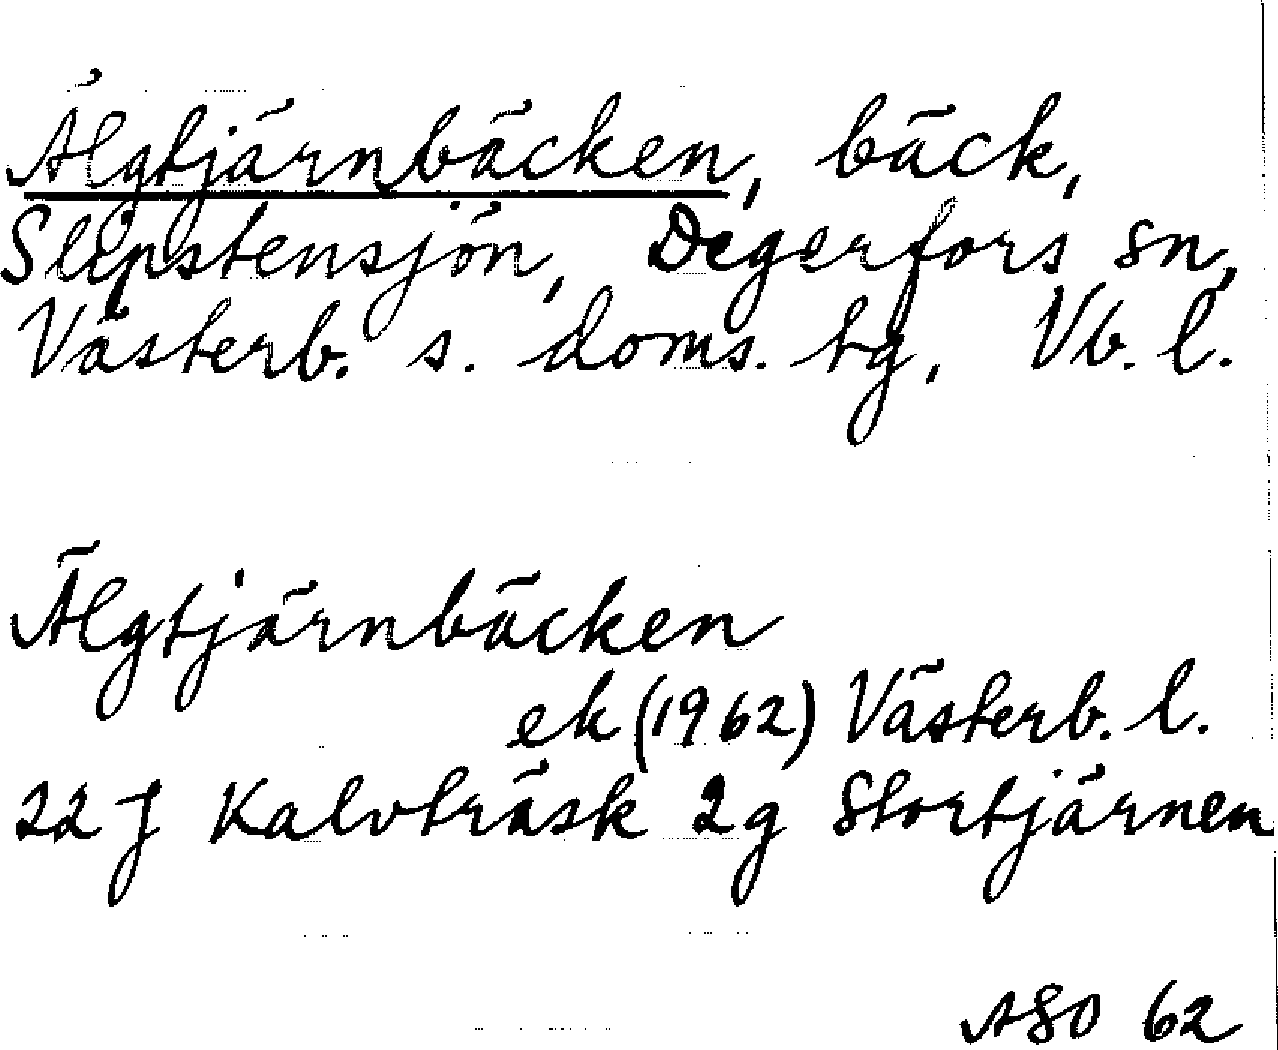 Älgtjärnbäcken, bäck,
Slipstensjön, Degerfors sn,
Västerb. s. doms. tg, Vb. l.
Älgtjärnbäcken
ek (1962) Västerb. l.
22 J Kalvträsk 2g Stortjärnen
ASO 62